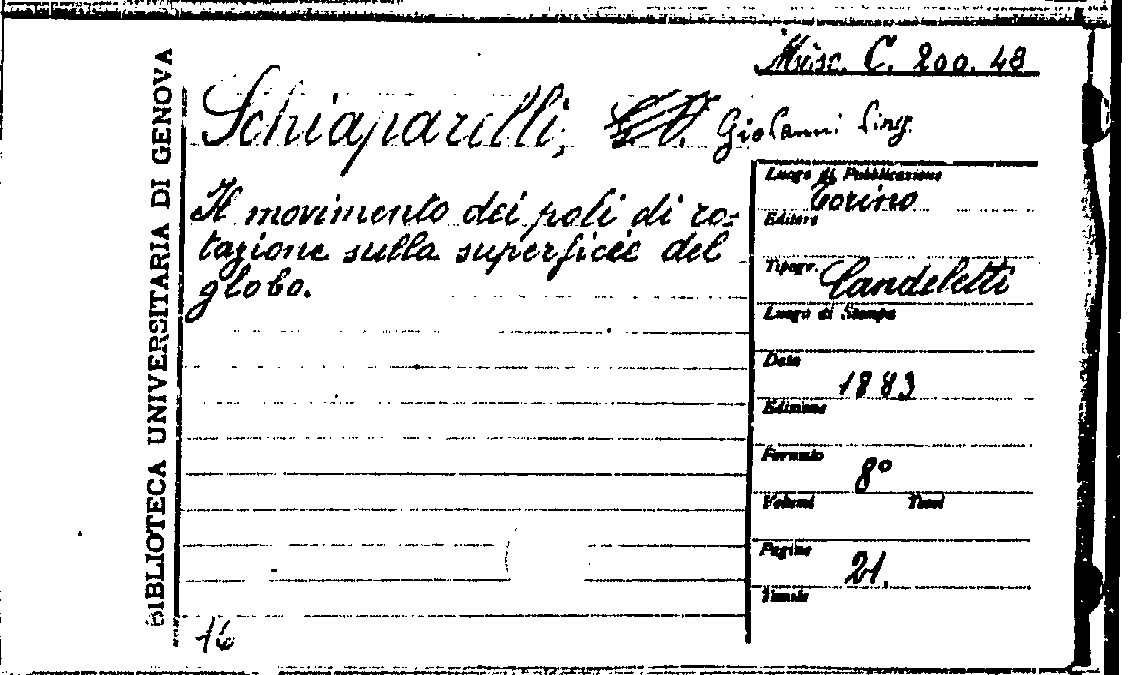 Misc. C. 200. 48
Schiaparelli, G. V. Giovanni Virg.
Il movimento dei poli di ro-
tazione sulla superficie del
globo.
BIBLIOTECA UNIVERSITARIA DI GENOVA
Luogo di Pubblicazione
Torino
Editore
Tipogr. Candeletti
Luogo di Stampa
Data
1883
Edizione
Formato
8º
Volumi Tomi
Pagine
21.
Tavole
16